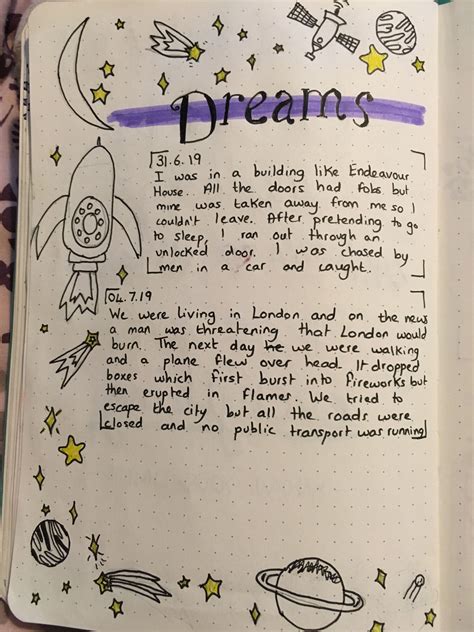 Dreams
31.6.19
I was in a building like Endeavour
House. All the doors had fobs but
mine was taken away from me so I
couldn't leave. After pretending to go
to sleep, I ran out through an
unlocked door. I was chased by
men in a car and caught.
04.7.19
We were living in London and on the news
a man was threatening that London would
burn. The next day he we were walking
and a plane flew over head. It dropped
boxes which first burst into fireworks but
then erupted in flames. We tried to
escape the city but all the roads were
closed and no public transport was running